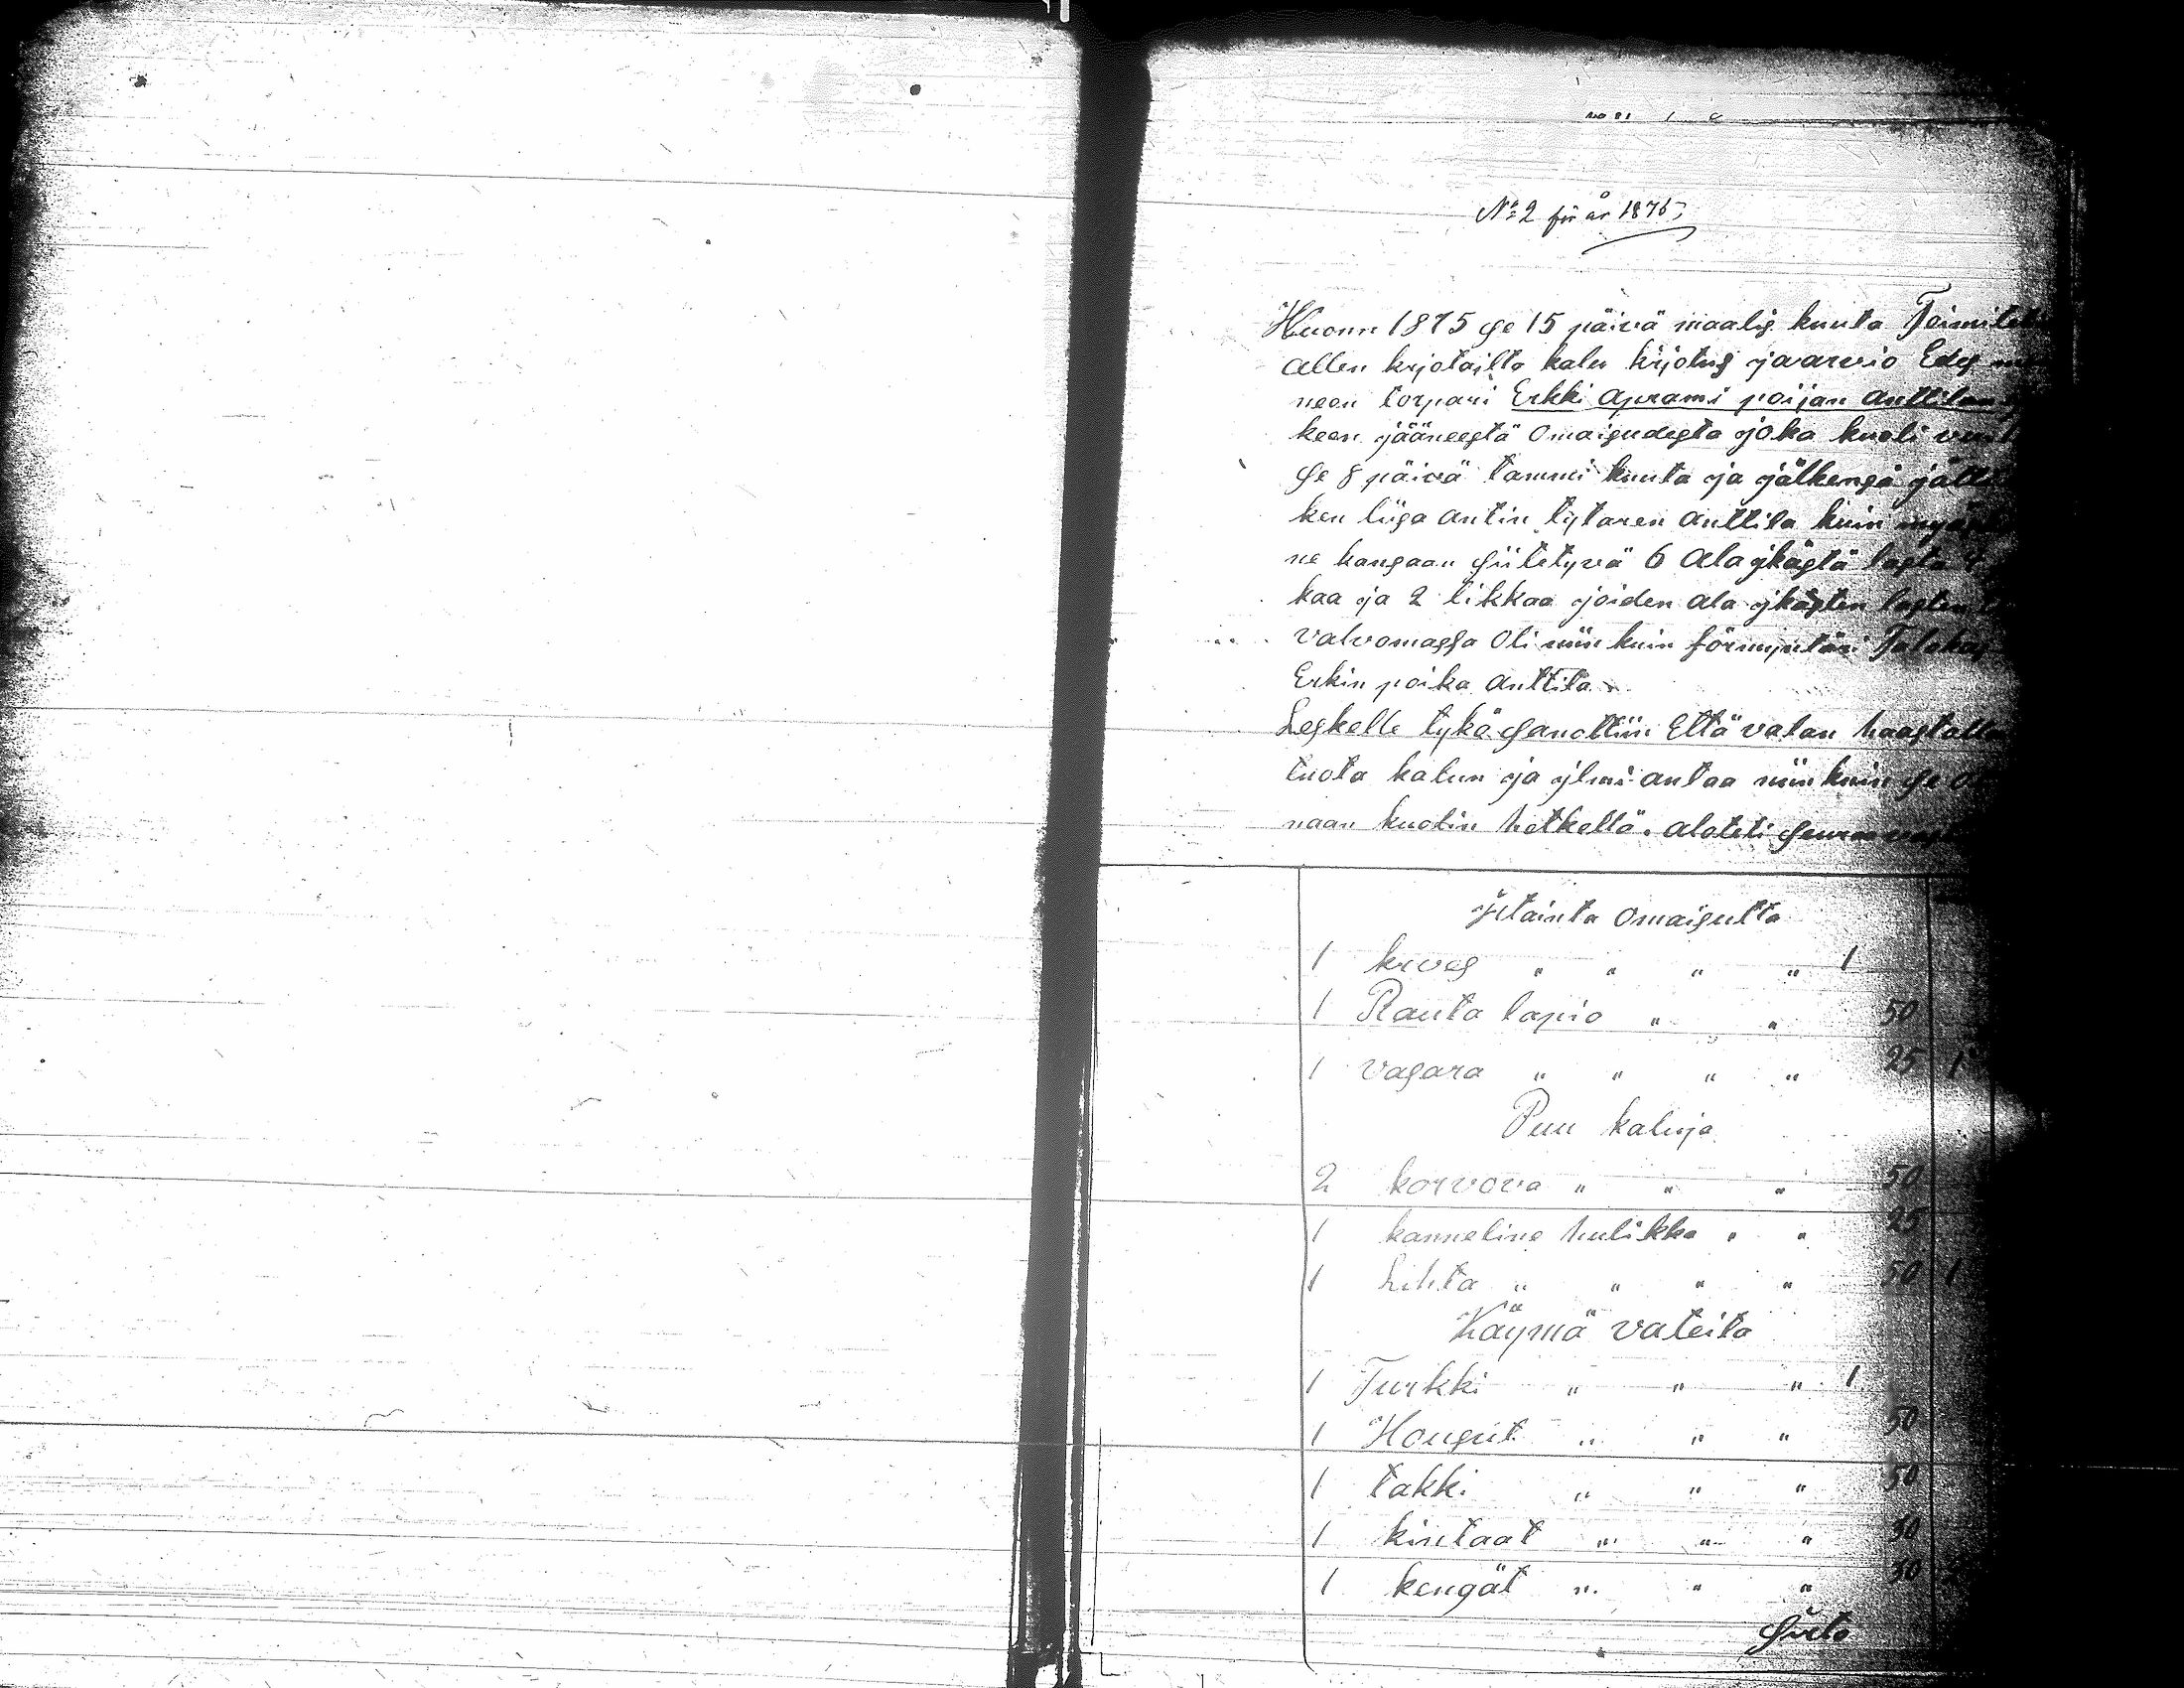 No 2 för år 1875
Wuonn 1875 se 15 päivä maalis kuuta
allen kirjotailta kalu kirjotus ja arvio Edes
neen torpari Erkki aprami poijan anttilan
keen jääneestä omaisudesta joka kuoli
se 8 päivä tammi kuuta ja jälkensä
ken liisa antin tytaren anttila kuin
ne kansaan siitetyvä 6 ala jkästä lasta
kaa ja 2 likkaa joiden ala jkästen lasten
valvomassa oli niin kuin förmyntäri
Erkin poika anttila
Leskelle tykö sanottiin Että valan
tuota kalun ja jlmi antaa niin kuin se
naan kuolin hetkellä. aloteti
omaisutta
1 kirves " " " " 1
1 Rauta lapio " " 50
1 vasara " " " " 25 1
Puu kaluja
2 korvova " " " 50
1 kanneline hulikka " " 25
1 Lihta " " " " 50 1
Käymä vateita
1 Turkki " " " 1
1 Housut " " " 50
1 takki " " " 50
1 kintaat " " " 30
1 kengät " " " 30
Siirto